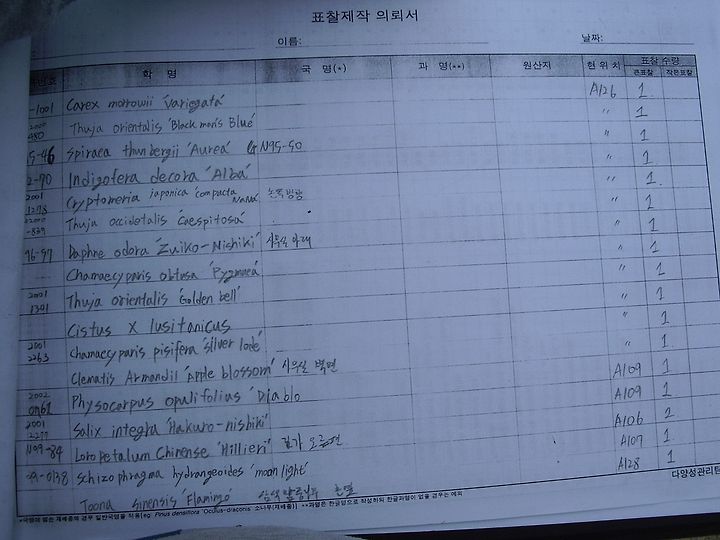 표찰제작 의뢰서
이름: 날짜:
학 명 국 명(*) 과 명(**) 원산지 현위치 표찰 수량
큰표찰 작은표찰
-1001 Carex morrowii 'Variegata' A126 1
2000 480 Thuja orientalis 'Blackman's Blue' " 1
95-46 Spiraea thunbergii 'Aurea' GN95-50 " 1
2-70 Indigofera decora 'Alba' " 1
2001 1278 Cryptomeria japonica 'compacta NaNa' " 1
2000 -839 Thuja occidetalis 'Caespitosa' " 1
96-97 Daphne odora 'Zuiko-Nishiki' 사무실 아래 " 1
Chamaecyparis obtusa 'Pygmaea' " 1
2001 1341 Thuja orientalis 'Golden bell' " 1
Cistus X lusitanicus " 1
2001 2263 chamaecyparis pisifera 'silver lode' " 1
Clematis Armandii 'Apple blossom' 사무실 벽면 A109 1
2002 0761 Physocarpus opulifolius 'Diablo A109 1
2001 2277 Salix integra 'Hakuro-nishiki' A106 2
1109-84 Loropetalum Chinense 'Hillieri' A107 1
99-0138 schizophragma hydrangeoides 'moon light' A128 1
Toona sinensis 'Flamingo'
다양성관리팀
*국명에 없는 재배종의 경우 일반국명을 적용[eg. Pinus densiflora 'Oculus-draconis' 소나무(재배종)] **과명은 한글명으로 작성하되 한글과명이 없을 경우는 예외